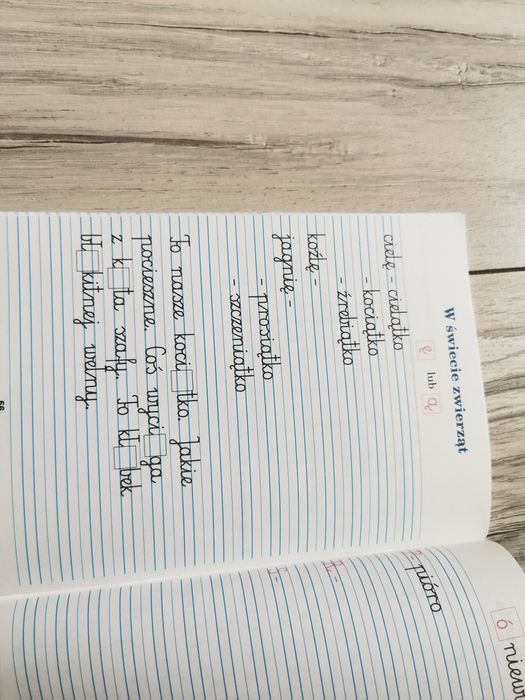 W świecie zwierząt
ę lub ą
cielę - cielątko
- kociątko
- źrebiątko
koźlę -
jagnię -
- prosiątko
- szczeniątko
To nasze koci□tko. Jakie
pocieszne. Coś wyci□ga
z k□ta szafy. To kł□bek
bł□kitnej wełny.
56
ó
pióro